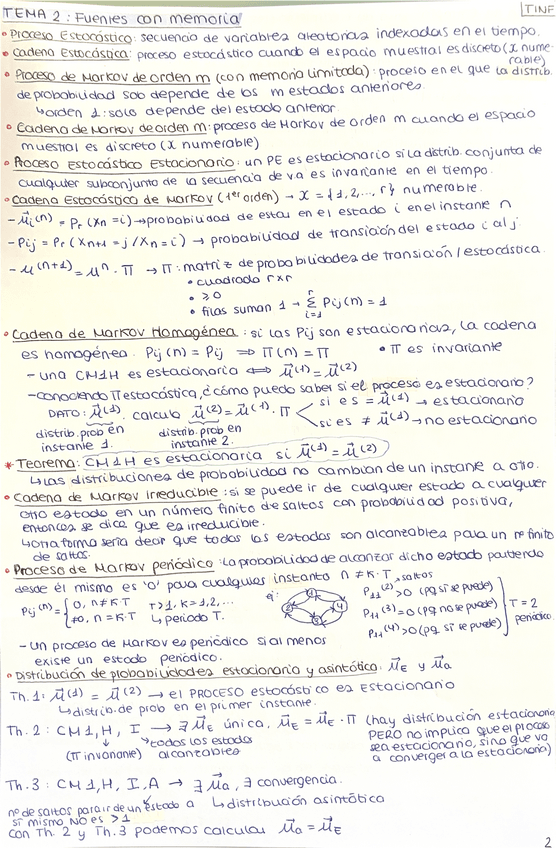 TEMA 2: Fuentes con memoria
TINF
• Proceso Estocástico: secuencia de variables aleatorias indexadas en el tiempo.
• Cadena Estocástica: proceso estocástico cuando el espacio muestral es discreto (x nume-
rable)
• Proceso de Markov de orden m (con memoria limitada): proceso en el que la distrib.
de probabilidad solo depende de los m estados anteriores
↳ orden 1: solo depende del estado anterior.
• Cadena de Markov de orden m: proceso de Markov de orden m cuando el espacio
muestral es discreto (x numerable)
• Proceso Estocástico Estacionario: un PE es estacionario si la distrib. conjunta de
cualquier subconjunto de la secuencia de v.a es invariante en el tiempo.
• Cadena Estocástica de Markov (1er orden) → X = {1, 2, ..., r} numerable.
- μ⃗i(n) = Pr (Xn = i) → probabilidad de estar en el estado i en el instante n
- Pij = Pr (Xn+1 = j / Xn = i) → probabilidad de transición del estado i al j.
- μ(n+1) = μn · Π → Π: matriz de probabilidades de transición / estocástica.
• cuadrada r×r
• ≥ 0
• filas suman 1 → r Σ i=1 Pij(n) = 1
• Cadena de Markov Homogénea: si las Pij son estacionarias, la cadena
es homogénea. Pij(n) = Pij ⇒ Π(n) = Π • Π es invariante
- una CM1H es estacionaria ⟺ μ⃗(1) = μ⃗(2)
- conociendo Π estocástica, ¿cómo puedo saber si el proceso es estacionario?
DATO: μ⃗(1). calculo μ⃗(2) = μ⃗(1) · Π < si es = μ⃗(1) → estacionario
si es ≠ μ⃗(1) → no estacionario
distrib. prob en instante 1. distrib. prob en instante 2.
* Teorema: CM1H es estacionaria si μ⃗(1) = μ⃗(2)
↳ Las distribuciones de probabilidad no cambian de un instante a otro.
• Cadena de Markov irreducible: si se puede ir de cualquier estado a cualquier
otro estado en un número finito de saltos con probabilidad positiva,
entonces se dice que es irreducible.
↳ otra forma sería decir que todos los estados son alcanzables para un nº finito
de saltos.
• Proceso de Markov periódico: la probabilidad de alcanzar dicho estado partiendo
desde él mismo es '0' para cualquier instante n ≠ K·T → saltos
Pij(n) = { 0, n ≠ K·T T > 1, K = 1, 2, ...
≠0, n = K·T ↳ periodo T.
ej: 1 2 3 4
P11(2) > 0 (pq si se puede)
P11(3) = 0 (pq no se puede)
P11(4) > 0 (pq si se puede)
T = 2 periódico.
- un proceso de Markov es periódico si al menos
existe un estado periódico.
• Distribución de probabilidades estacionario y asintótica: μ⃗E y μ⃗a
Th. 1: μ⃗(1) = μ⃗(2) → el PROCESO estocástico es Estacionario
↳ distrib. de prob en el primer instante.
Th. 2: CM1, H, I → ∃ μ⃗E única, μ⃗E = μ⃗E · Π (hay distribución estacionaria
PERO no implica que el proceso
sea estacionario, sino que va
a converger a la estacionaria)
(Π invariante) todos los estados alcanzables
Th. 3: CM1, H, I, A → ∃ μ⃗a, ∃ convergencia.
↳ distribución asintótica
nº de saltos para ir de un estado a
si mismo NO es > 1
Con Th. 2 y Th. 3 podemos calcular μ⃗a = μ⃗E
2